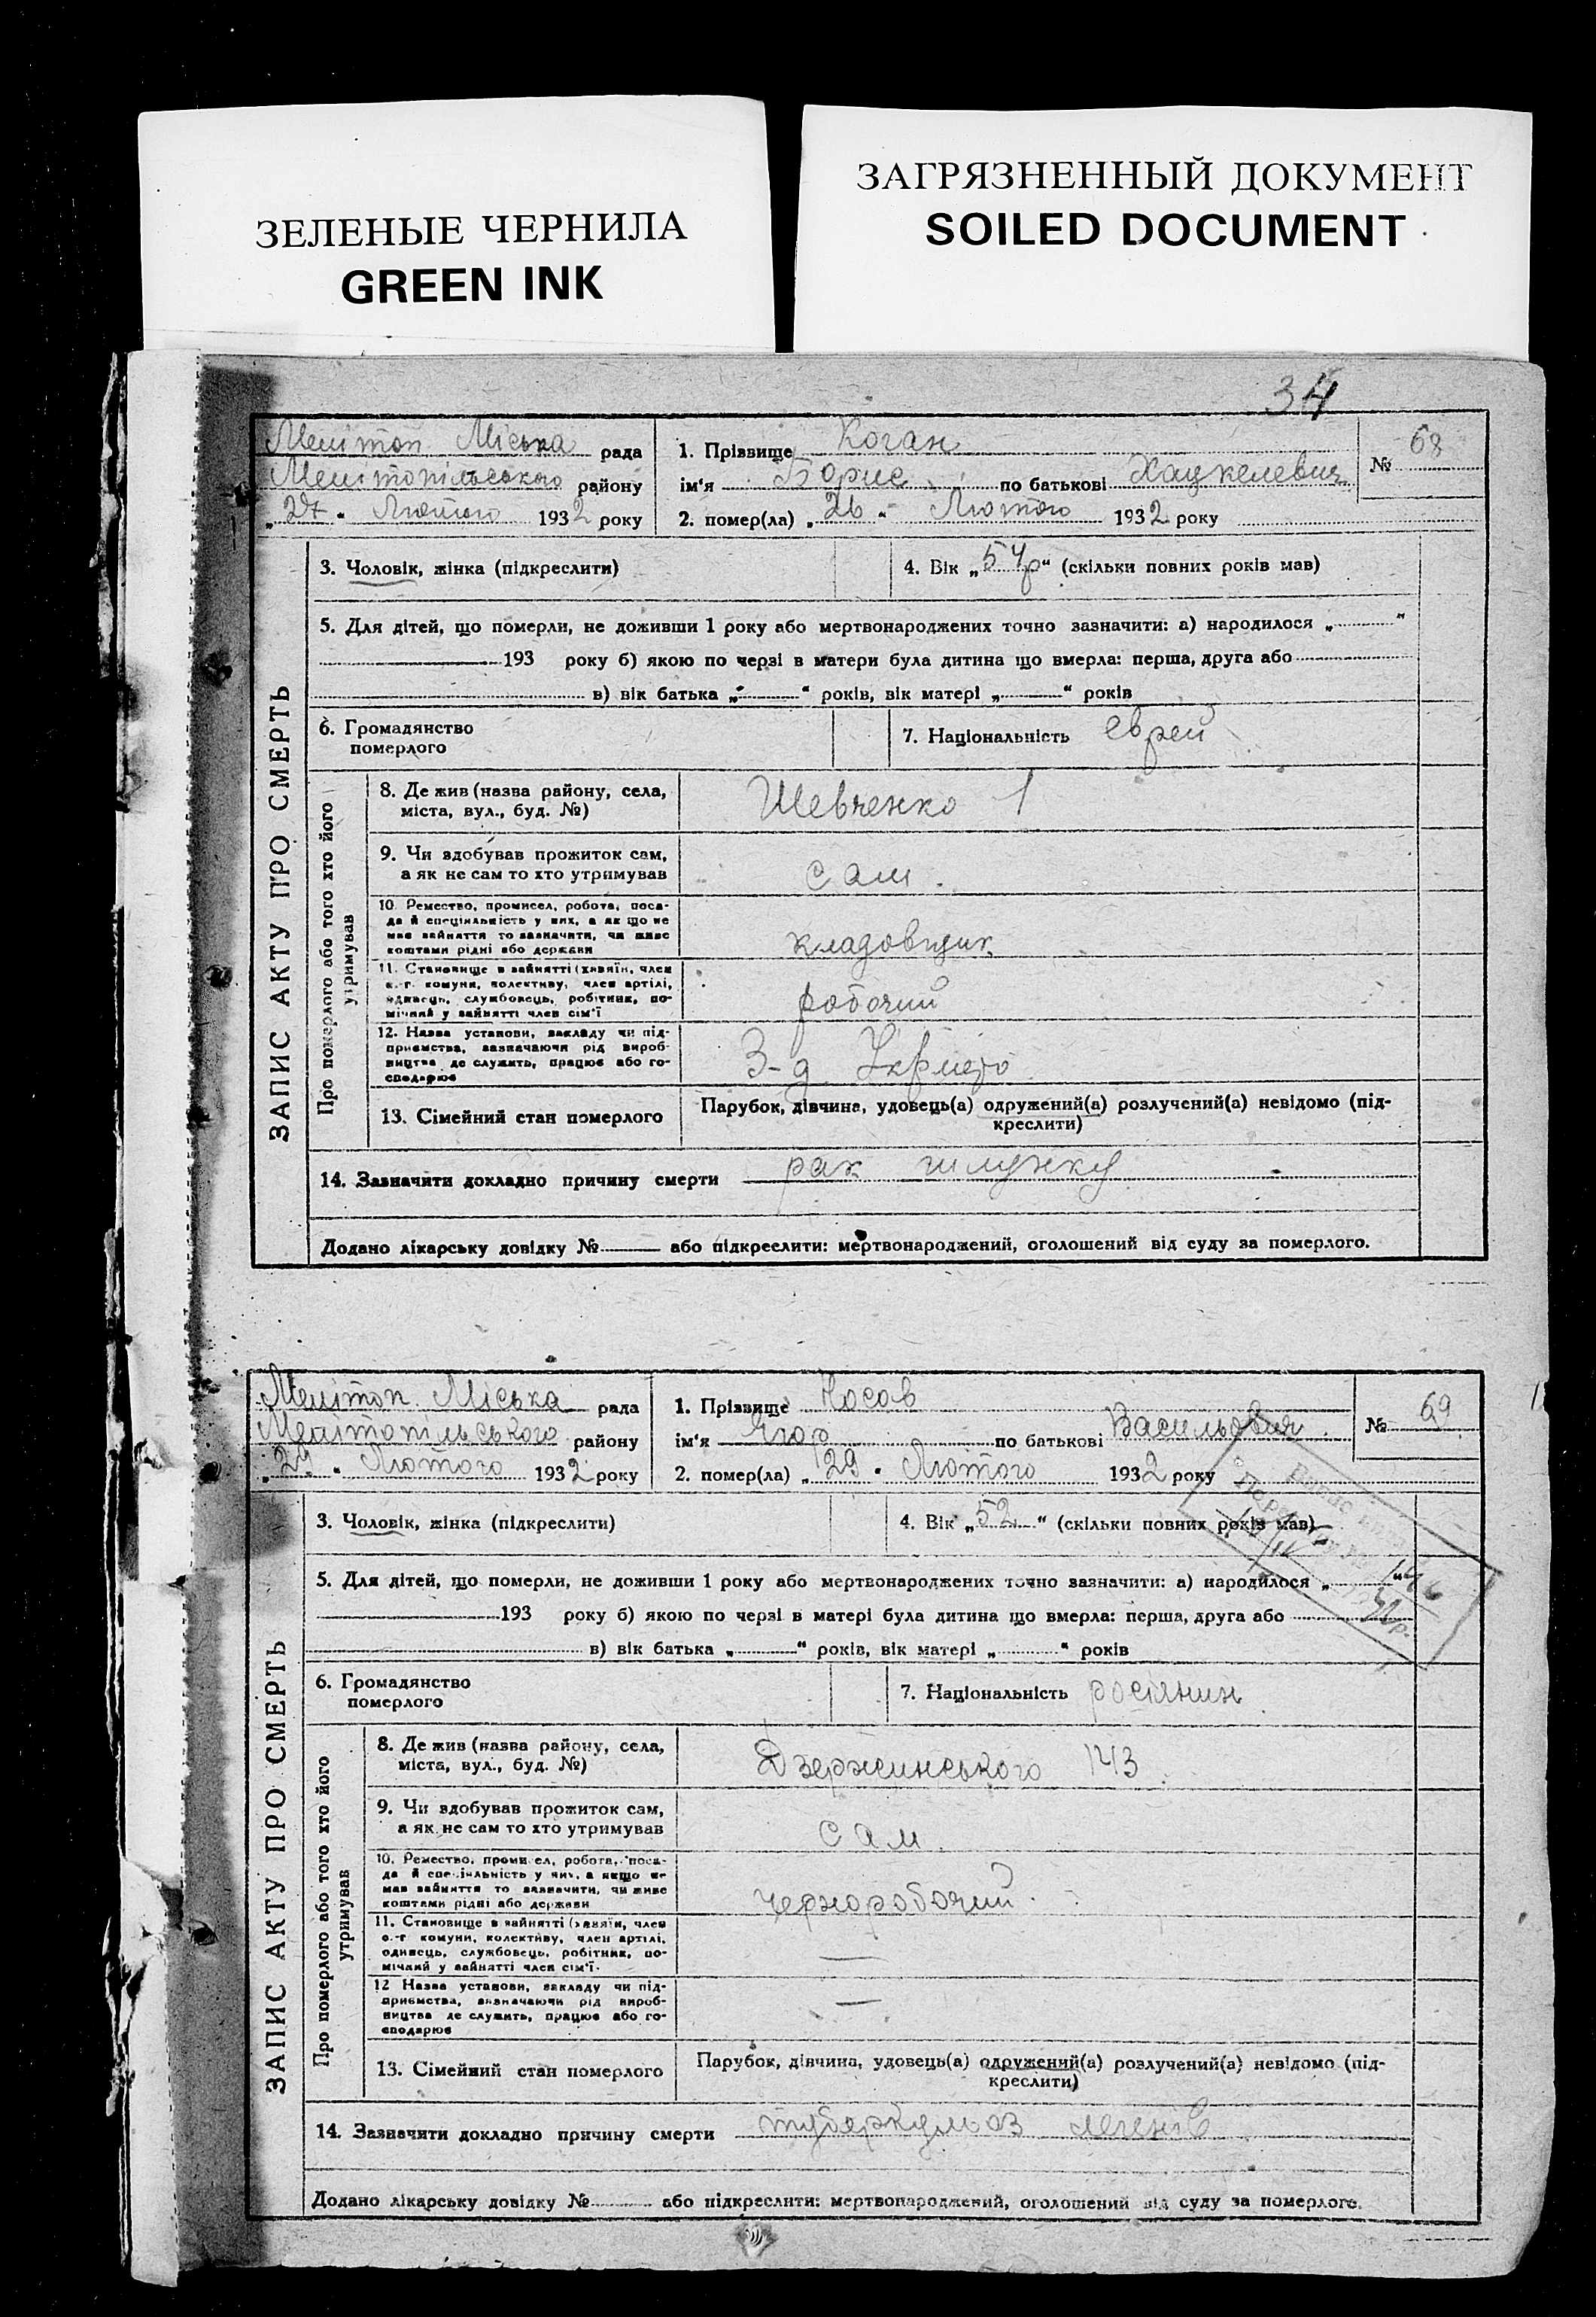 ЗЕЛЕНЫЕ ЧЕРНИЛА
GREEN INK
ЗАГРЯЗНЕННЫЙ ДОКУМЕНТ
SOILED DOCUMENT
34
Мелітоп. Міська рада
Мелітопільського району
„27“ Лютого 1932 року
1. Прізвище Коган
ім'я Борис по батькові Хацкелевич
2. помер(ла) „26“ Лютого 1932 року
№ 68
ЗАПИС АКТУ ПРО СМЕРТЬ
3. Чоловік, жінка (підкреслити)
4. Вік „54р“ (скільки повних років мав)
5. Для дітей, що померли, не доживши 1 року або мертвонароджених точно зазначити: а) народилося „ “
193 року б) якою по черзі в матери була дитина що вмерла: перша, друга або
в) вік батька „ “ років, вік матері „ “ років
6. Громадянство
померлого
7. Національність еврей
Про померлого або того хто його
утримував
8. Де жив (назва району, села,
міста, вул., буд. №)
Шевченко 1
9. Чи здобував прожиток сам,
а як не сам то хто утримував
сам.
10. Ремество, промисел, робота, поса-
да й спеціяльність у них, а як що не
мав зайняття то зазначити, чи живе
коштами рідні або держави
кладовщик
11. Становище в зайнятті (хазяїн, член
с.-г. комуни, колективу, член артілі,
одинець, службовець, робітник, по-
мічний у зайнятті член сім'ї
робочий
12. Назва установи, закладу чи під-
приємства, зазначаючи рід вироб-
ництва де служить, працює або го-
сподарює
З-д
13. Сімейний стан померлого
Парубок, дівчина, удовець(а) одружений(а) розлучений(а) невідомо (під-
креслити)
14. Зазначити докладно причину смерти рак шлунку
Додано лікарську довідку № або підкреслити: мертвонароджений, оголошений від суду за померлого.
Мелітоп. Міська рада
Мелітопільського району
„29“ Лютого 1932 року
1. Прізвище Носов
ім'я Ягор по батькові Васильович
2. помер(ла) „29“ Лютого 1932 року
№ 69
ЗАПИС АКТУ ПРО СМЕРТЬ
3. Чоловік, жінка (підкреслити)
4. Вік „52“ (скільки повних років мав)
5. Для дітей, що померли, не доживши 1 року або мертвонароджених точно зазначити: а) народилося „ “
193 року б) якою по черзі в матері була дитина що вмерла: перша, друга або
в) вік батька „ “ років, вік матері „ “ років
6. Громадянство
померлого
7. Національність росіянин
Про померлого або того хто його
утримував
8. Де жив (назва району, села,
міста, вул., буд. №)
Дзержинського 143
9. Чи здобував прожиток сам,
а як не сам то хто утримував
сам.
10. Ремество, промисел, робота, поса-
да й спеціяльність у них, а якщо не
мав зайняття то зазначити, чи живе
коштами рідні або держави
чорноробочий
11. Становище в зайнятті (хазяїн, член
с.-г комуни, колективу, член артілі,
одинець, службовець, робітник, по-
мічний у зайнятті член сім'ї.
—
12 Назва установи, закладу чи під-
приємства, зазначаючи рід вироб-
ництва де служить, працює або го-
сподарює
—
13. Сімейний стан померлого
Парубок, дівчина, удовець(а) одружений(а) розлучений(а) невідомо (під-
креслити)
14. Зазначити докладно причину смерти туберкульоз легенів
Додано лікарську довідку № або підкреслити: мертвонароджений, оголошений від суду за померлого.